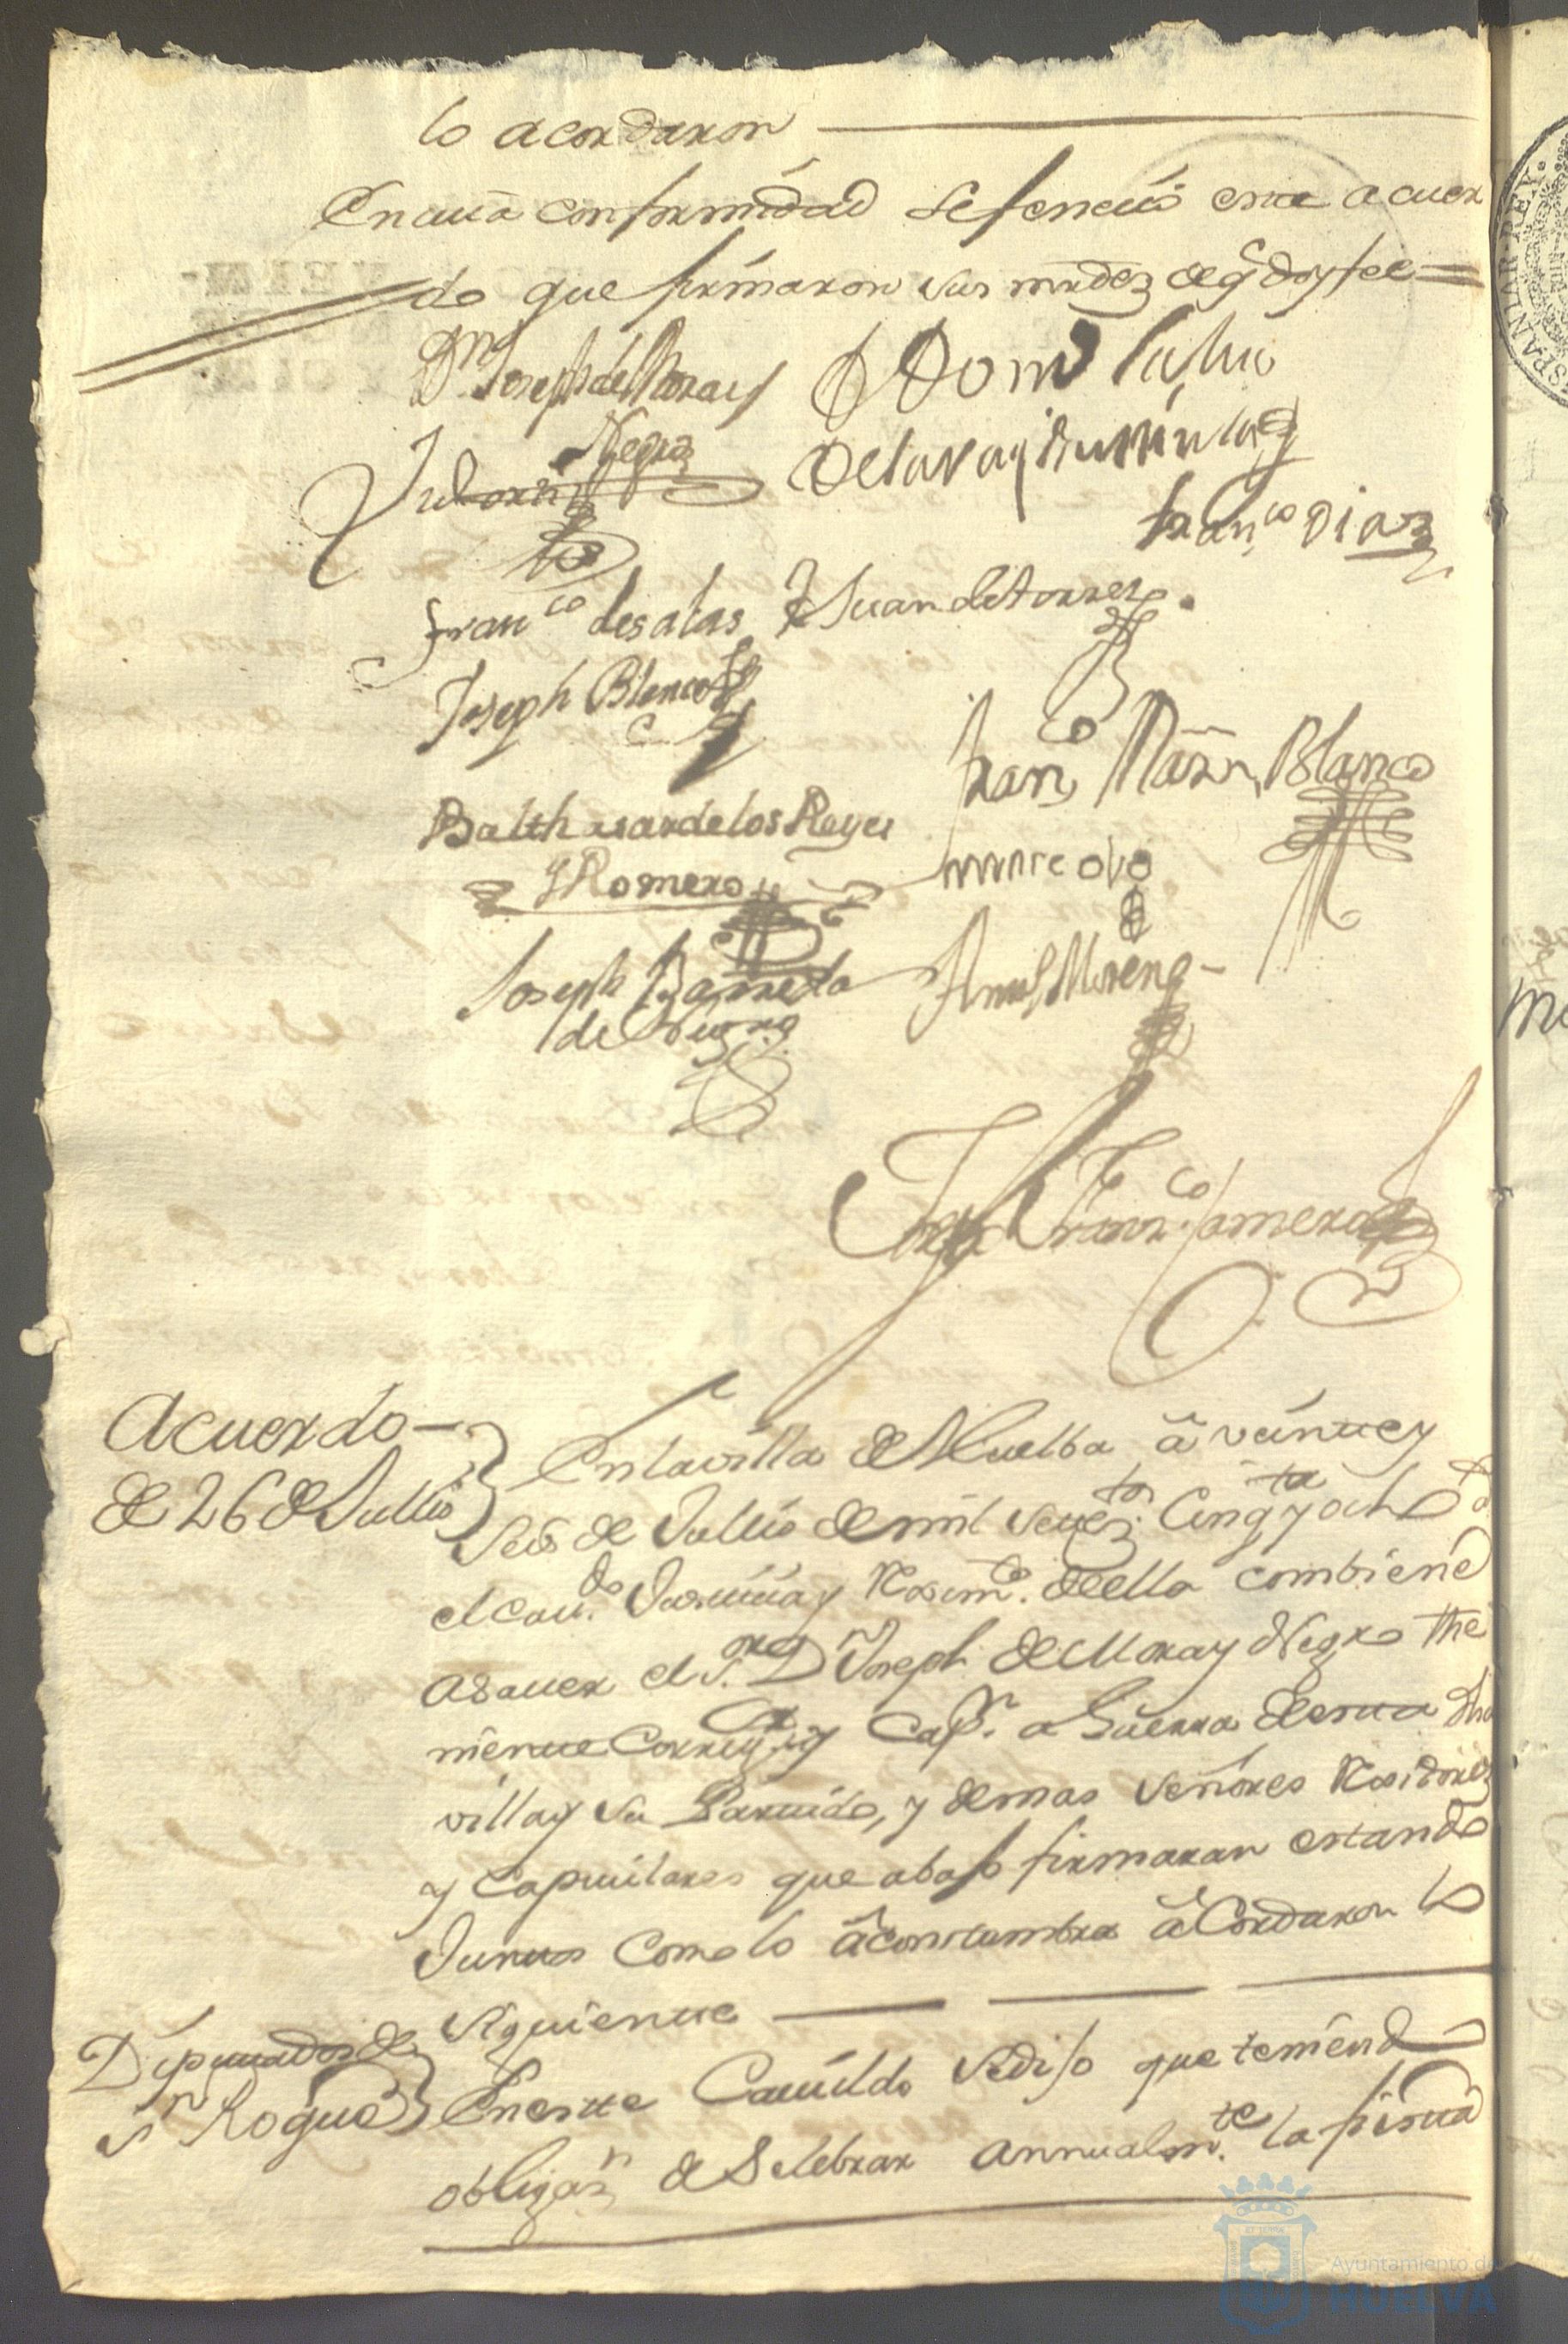 lo acordaron
En cuia conformidad se fenecio este acuer
do que firmaron sus mrdez de q doy fee
Dn Joseph de Mora y
Negro
Dom
Franco Diaz
Franco de salas
Juan de torres
Joseph Blanco
Franco Marn Blanco
Balthasar de los Reyes
y Romero
Joseph Barreda
Moreno
Franco Camero
Acuerdo
de 26 de Jullio
En la villa de Huelba à veinte y
seis de Jullio de mil setezos Cinqta y ocho
el Cauo Justicia y Reximto de ella combiene
a saver el Sor Dn Joseph de Mora y Negro the
niente Corregor y Capn a Guerra de esta dha
villa y su Partido, y demas señores Rexidores
y Capitulares que abajo firmaran estando
Juntos como lo àcostumbra àCordaron lo
siguiente
Diputados de
Sn Roque
En este Cavildo se dijo que teniendo
obligazn de Selebrar annualmte la fiesta
Ayuntamiento de
HUELVA